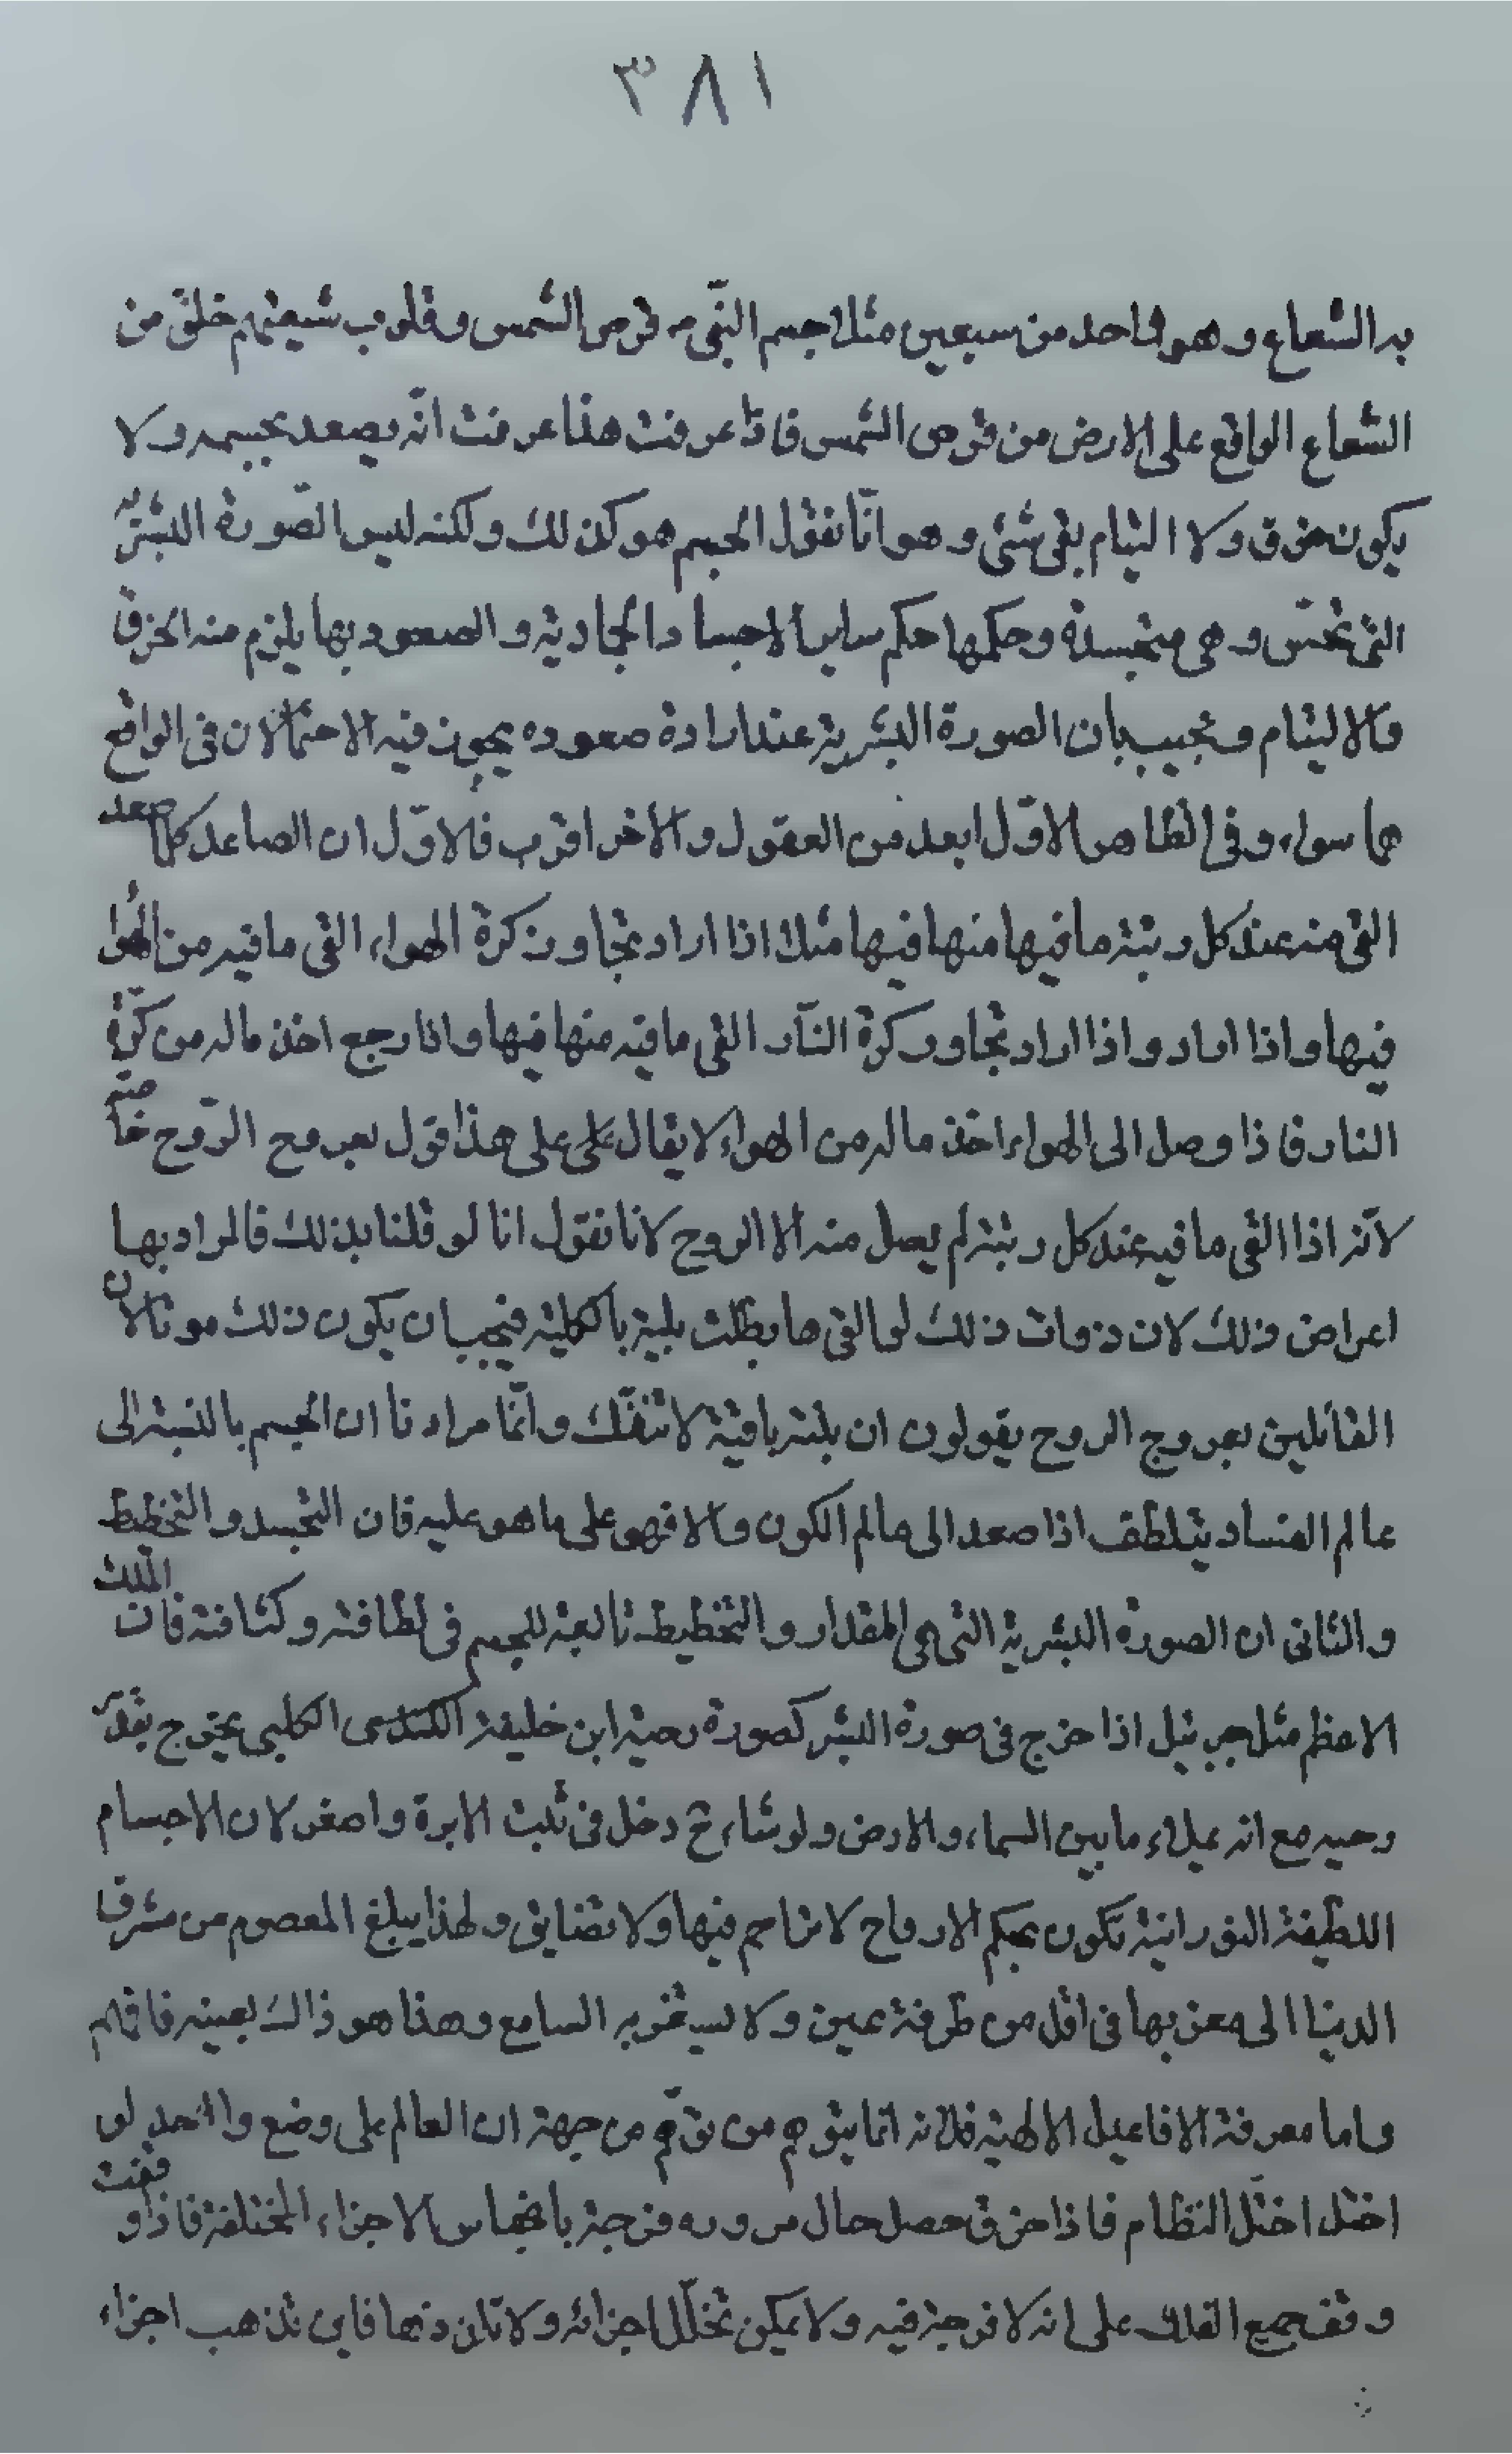 ٣٨١
به الشعاع وهو واحد من سبعين مثلا جسم النّبي ص قرص الشمس وقلوب شيعتهم خلق من
الشعاع الواقع على الارض من قرص الشمس فاذا عرفت هذا عرفت انّه يصعد بجسمه ولا
يكون خرق ولا التيام بقى شئ وهو انّا نقول الجسم هو كذلك ولكنه لبس الصّورة البشريّه
التى تحسّ وهى متجسدة وحكمها حكم ساير الاجساد الجمادية والصعود بها يلزم منه الخرق
والالتيام ونجيب بان الصورة البشرية عند ارادة صعوده يجوز فيه الاحتمالان فى الواقع
هما سواء وفى الظاهر الاوّل ابعد من العقول والاخر اقرب فالاوّل ان الصاعد كلما صعد
القى منه عند كل رتبة ما فيها منها فيها مثلا اذا اراد تجاوز كرة الهواء القى ما فيه من الهوا
فيها واذا اراد واذا اراد تجاوز كرة النّار القى ما فيه منها فيها واذا رجع اخذ ماله من كرّة
النار فاذا وصل الى الهواء اخذ ماله من الهواء لا يقال على على هذا قول بعروج الرّوح خاصّة
لانّه اذا القى ما فيه عند كل رتبة لم يصل منه الا الروح لانا نقول انا لو قلنا بذلك فالمراد بها
اعراض ذلك لان ذوات ذلك لو القى ها بطلت بليته بالكلية فيجب ان يكون ذلك موتا لان
القائلين بعروج الروح يقولون ان بليته باقية لا تنفّك وانّما مرادنا ان الجسم بالنسبة الى
عالم الفساد يتلطّف اذا صعد الى عالم الكون والا فهو على ما هو عليه فان التجسد والتخطيط
والثانى ان الصورة البشرية التى هى المقدار والتخطيط تابعة للجسم فى لطافته وكثافته فان الملك
الاعظم مثل جبرئيل اذا خرج فى صورة البشر كصورة دحية ابن خليفة الكلبى يخرج بقدر
دحيه مع انه يملاء ما بين السماء والارض ولو شاء دخل فى ثقب الابرة واصغر لان الاجسام
اللطيفة النورانية تكون بحكم الارواح لا تزاحم فيها ولا تضايق ولهذا يبلغ المعصوم من مشرق
الدنيا الى مغربها فى اقل من طرفة عين ولا يستغربه السامع وهذا هو ذالك بعينه فافهم
واما معرفة الافاعيل الالهية فلانه انما يتوهم من توّهم من جهة ان العالم على وضع واحد لو
اختل اختّل النظام فاذا خرق حصل حال مروره فرجة بانحباس الاجزاء المختلفة فاذا وقفت
وقف جميع الفلك على انه لا فرجة فيه ولا يمكن تخلّل اجزائه ولا تلززها فاين تذهب اجزاء